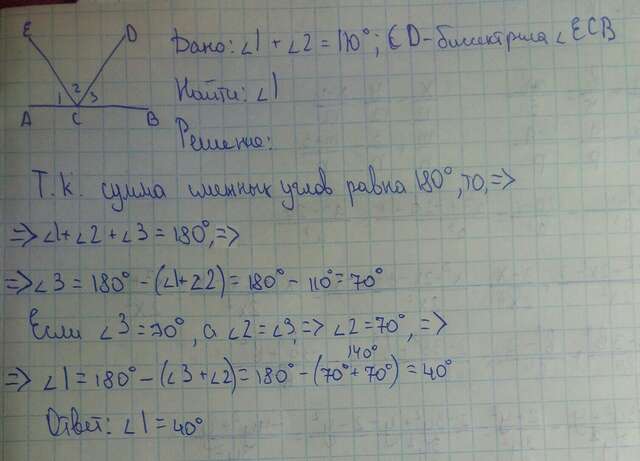 E D
1 2 3
A C B
Дано: ∠1 + ∠2 = 110°; CD - биссектриса ∠ECB
Найти: ∠1
Решение:
Т.к. сумма смежных углов равна 180°, то, =>
=> ∠1 + ∠2 + ∠3 = 180°, =>
=> ∠3 = 180° - (∠1 + ∠2) = 180° - 110° = 70°
Если ∠3 = 70°, а ∠2 = ∠3, => ∠2 = 70°, =>
140°
=> ∠1 = 180° - (∠3 + ∠2) = 180° - (70° + 70°) = 40°
Ответ: ∠1 = 40°